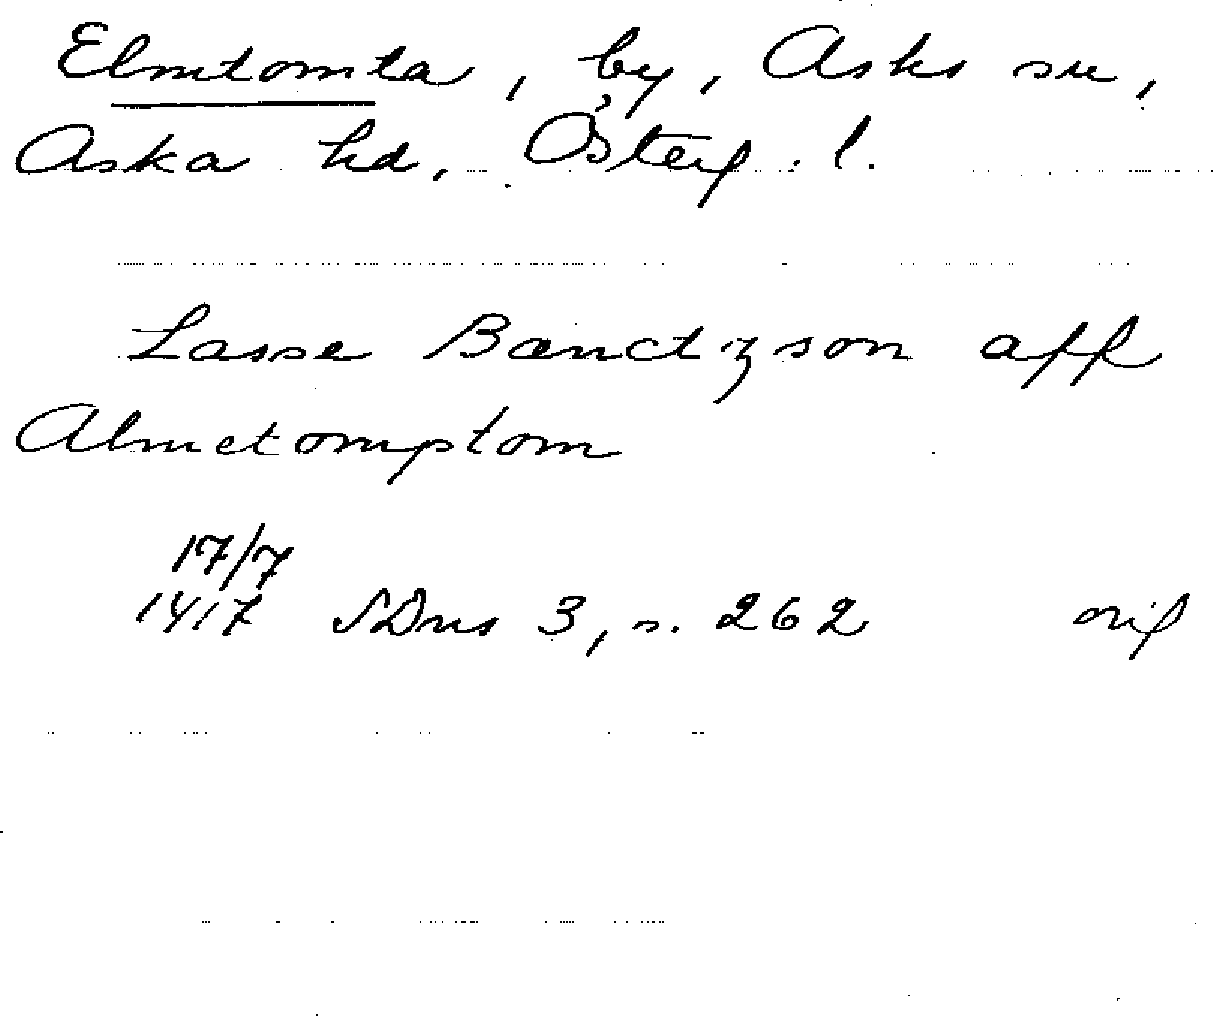 Elmtomta, by, Asks sn,
Aska hd, Österg. l.
Lasse Bænctzson aff
Almetomptom
17/7
1417 SDns 3, s. 262 orig